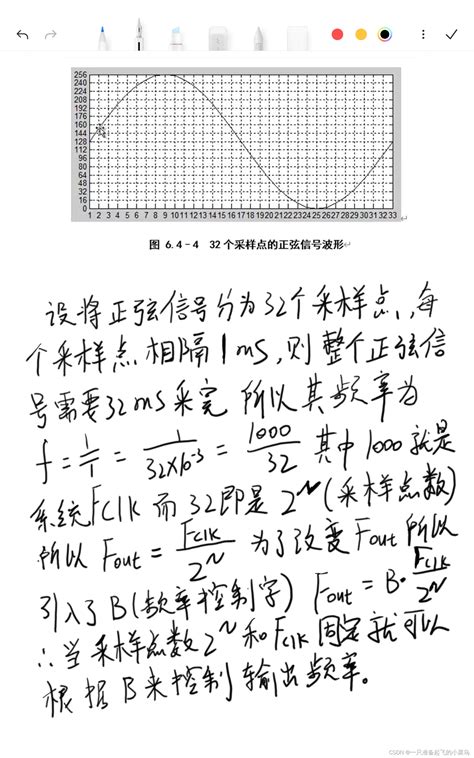 256
240
224
208
192
176
160
144
128
112
96
80
64
48
32
16
0
1 2 3 4 5 6 7 8 9 10 11 12 13 14 15 16 17 18 19 20 21 22 23 24 25 26 27 28 29 30 31 32 33
图 6.4-4 32个采样点的正弦信号波形
设将正弦信号分为32个采样点,每
个采样点相隔1ms,则整个正弦信
号需要32ms采完 所以其频率为
f = 1/T = 1/32×10⁻³ = 1000/32 其中1000就是
系统Fclk 而32即是2^N(采样点数)
所以Fout = Fclk/2^N 为了改变Fout所以
引入了B(频率控制字) Fout = B·Fclk/2^N
∴当采样点数2^N和Fclk固定就可以
根据B来控制输出频率。
CSDN @一只准备起飞的小菜鸟